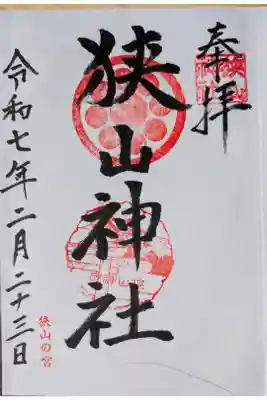 奉拝
狭山神社
令和七年二月二十三日
狭山の宮